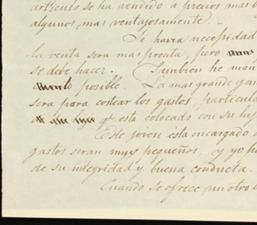 artículo se ha avenido a precios mas b
algunos mas ventajosamente.
Si havra necesidad
la venta sera mas pronta, pero
se debe hacer. Tambien he
posible. La mas grande ga
sera para costear los gastos, particula
qe esta colocado con su
Este joven esta encargado d
gastos seran muy pequeños, y yo h
de su integridad y buena conducta.
Cuando se ofrece un otro